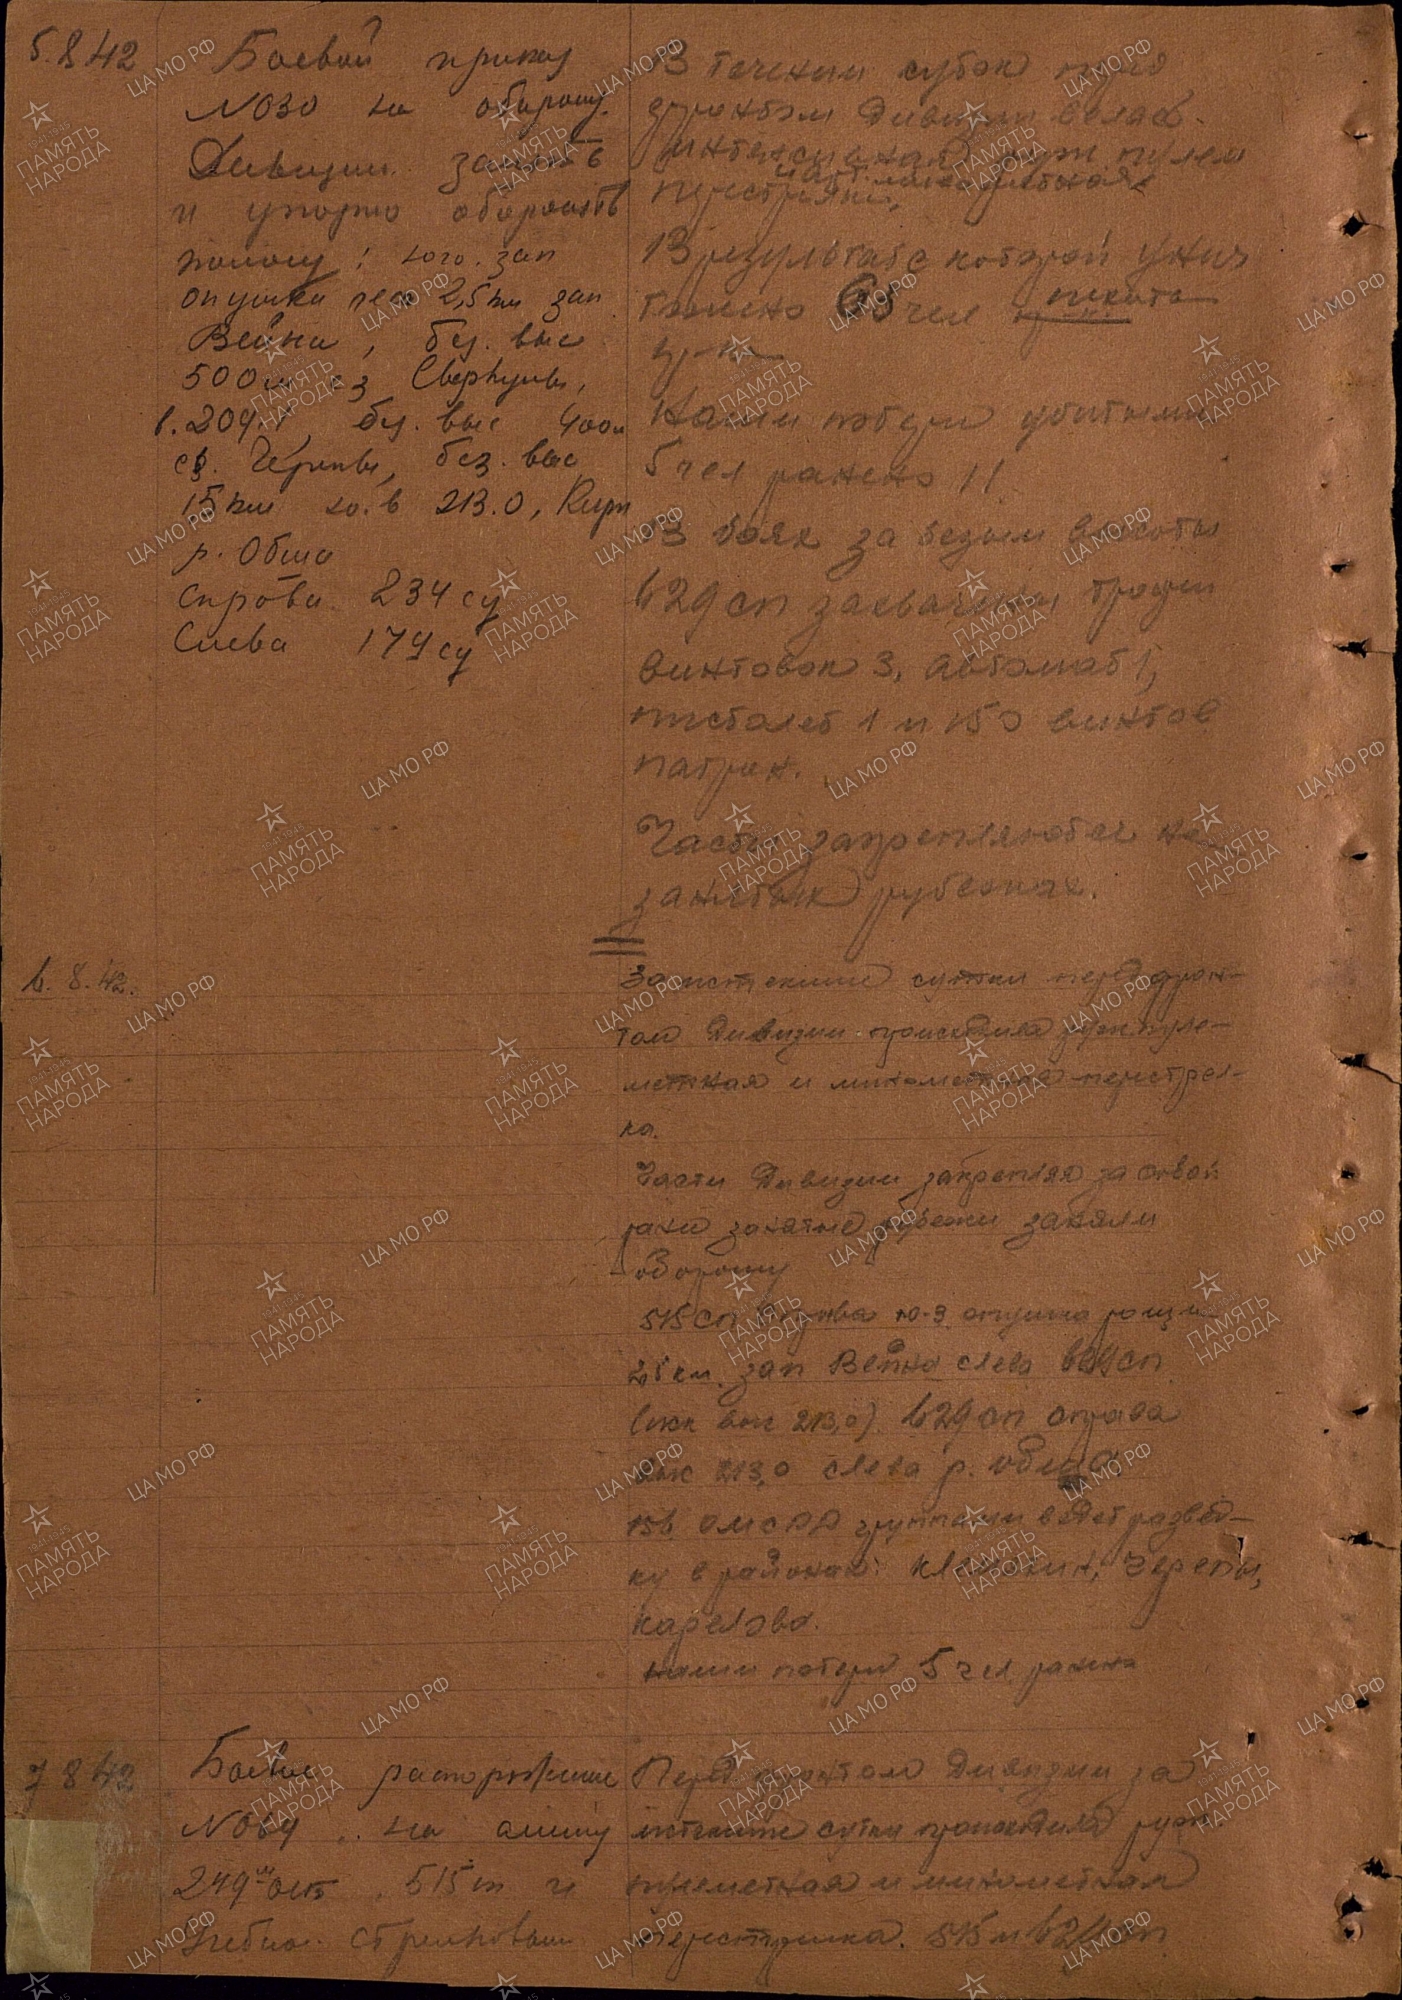 5.8.42
Боевой приказ
№030 на оборону.
Дивизии занять
и упорно оборонять
полосу: юго.зап
опушка леса 2,5км зап
Вейна, без. выс
500м сз Свертушы,
в.209. без. выс 400м
св. Черепы, без. выс
15км ю.в 213.0, Кирп
р. Обша
Справа 234 сд
Слева 179 сд
В течении суток перед
фронтом дивизии велась
интенсивная руж пулем
перестрелка,
В результате которой унич
тожено 65 чел
пр-ка
Наши потери убитыми
5 чел ранено 11
В боях за безым высоты
629 сп захвачены трофеи
винтовок 3, автомат 1,
пистолет 1 и 150 винтов
патрон.
Части закрепляются на
занятых рубежах.
6.8.42.
За истекшие сутки перед фрон-
том Дивизии происходила руж пуле-
метная и минометная перестрел-
ка.
Части Дивизии закрепляя за собой
ранее занятые рубежи заняли
оборону
515 сп справа ю-з опушка рощи
2,5 км. зап Вейна слева 629 сп
(иск выс 213,0) 629 сп справа
выс 213,0 слева р. Обша
156 ОМСРР группами ведет развед-
ку в районах: Клешнин, Черепы,
Карелово.
Наши потери 5 чел ранено
7 8 42
Боевое распоряжение
№064 на смену
249 515сп и
Учебно. стрелковым
Перед фронтом Дивизии за
истекшие сутки происходила руж
пулеметная и минометная
перестрелка. 515 и 629 сп
ПАМЯТЬ НАРОДА
ЦА МО РФ